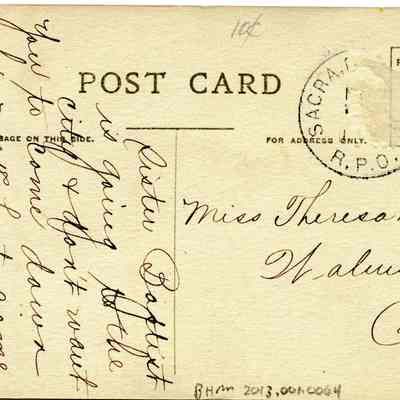 10¢
POST CARD
SAGE ON THIS SIDE.
FOR ADDRESS ONLY.
SACRA
R.P.O.
Sister Baptist
is going to the
city & don't want
you to come down
Miss Theresa
Walnu
BHM 2013.001.0064